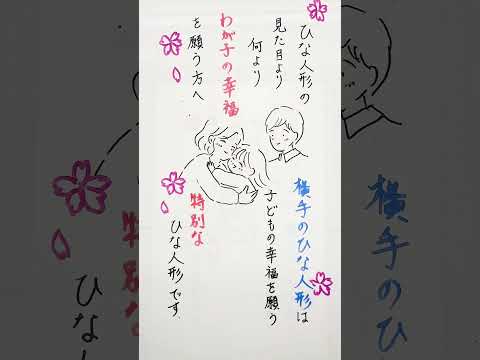 ひな人形の
見た目より
何より
わが子の幸福
を願う方へ
横手のひな人形は
子どもの幸福を願う
特別な
ひな人形です
横手のひ
特別な
ひな